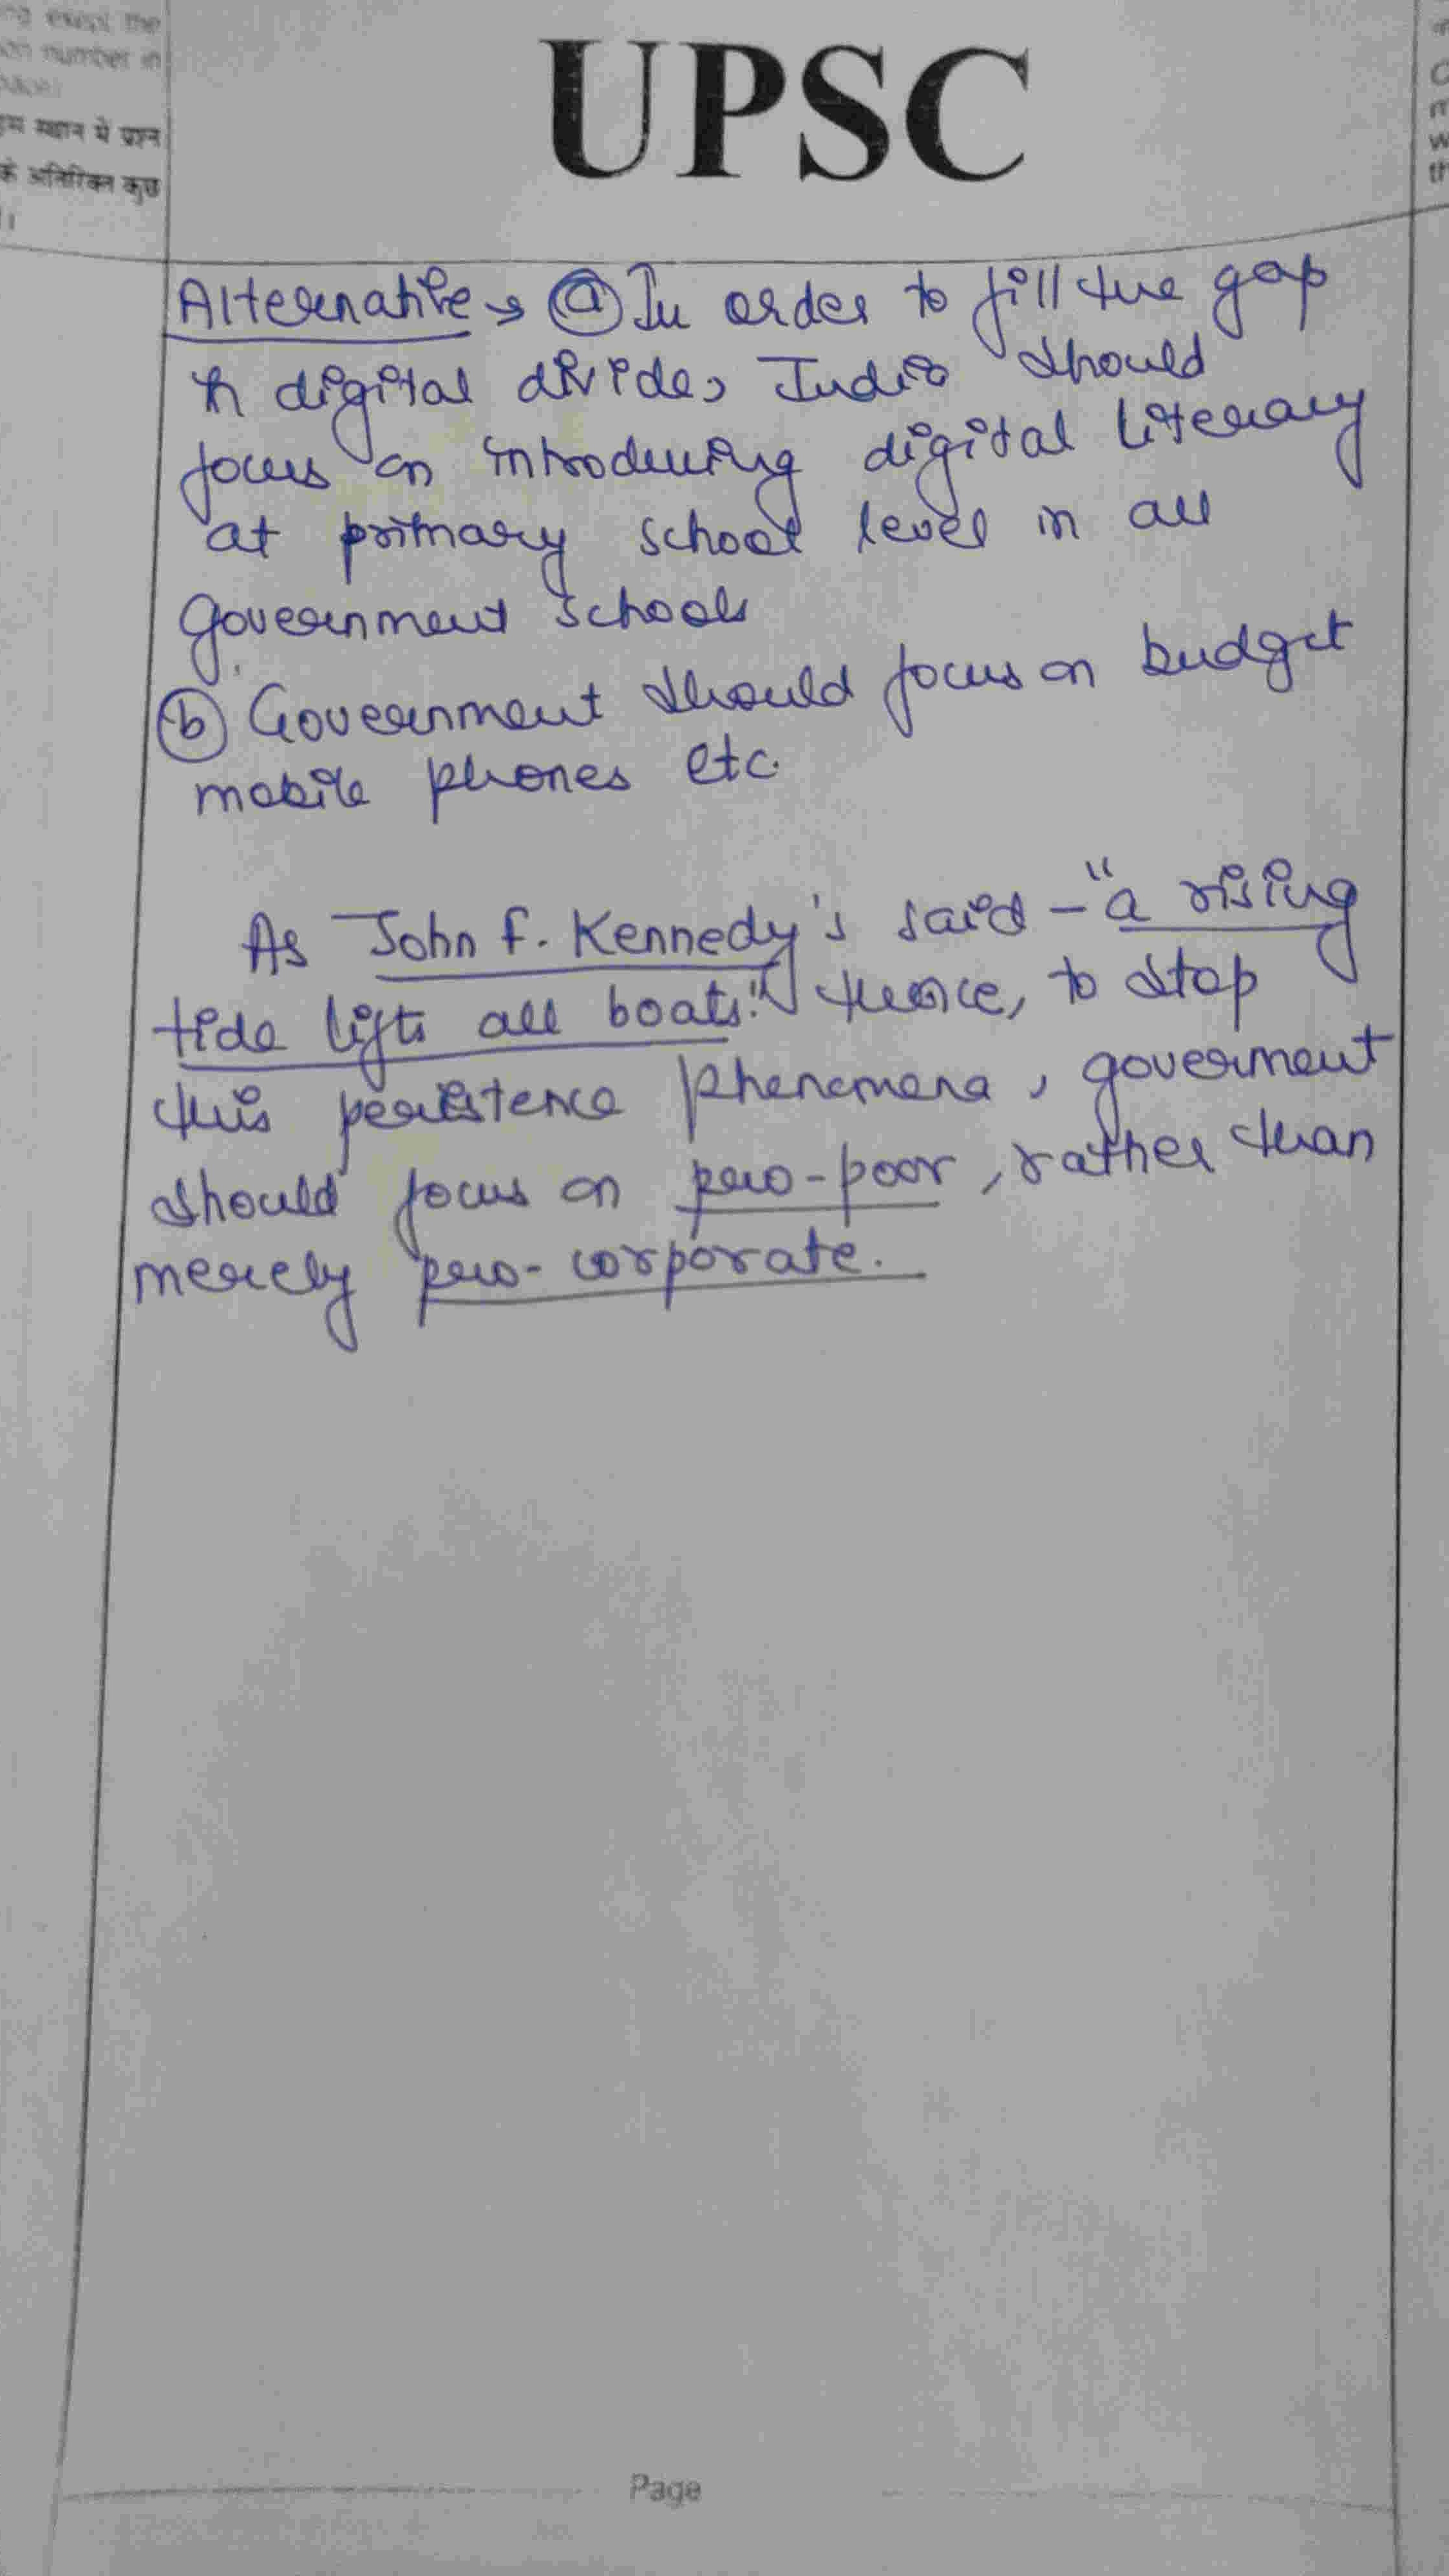 ng except the
on number in
इस स्थान में प्रश्न
के अतिरिक्त कुछ
UPSC
Alternative → ⓐ In order to fill the gap
in digital divide, India should
focus on introducing digital literary
at primary school level in all
Government schools
ⓑ Government should focus on budget
mobile phones etc.
As John F. Kennedy's said - "a rising
tide lifts all boats." Hence, to stop
this persistence phenomena, government
should focus on pro-poor, rather than
merely pro-corporate.
Page